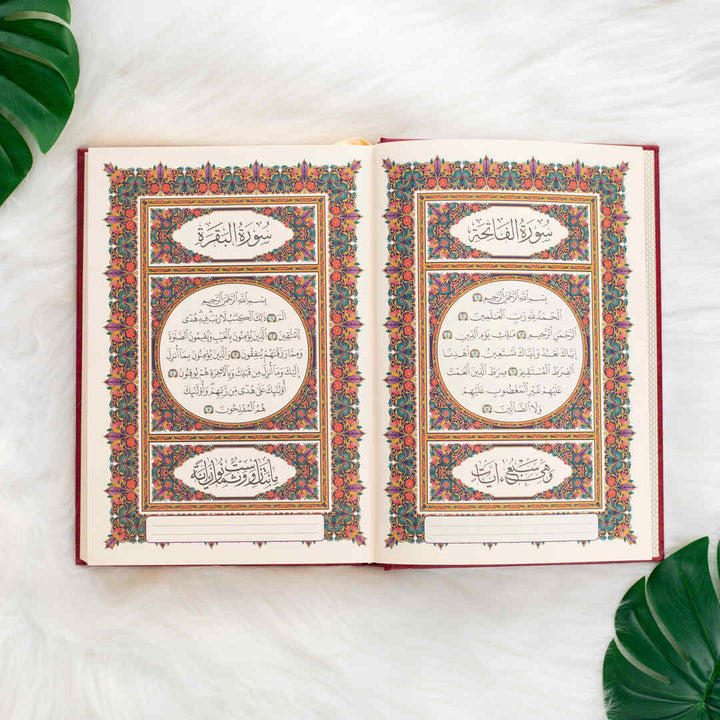 سُورَةُ الْفَاتِحَةِ
بِسْمِ اللَّهِ الرَّحْمَٰنِ الرَّحِيمِ ۝
الْحَمْدُ لِلَّهِ رَبِّ الْعَٰلَمِينَ ۝
الرَّحْمَٰنِ الرَّحِيمِ ۝ مَٰلِكِ يَوْمِ الدِّينِ ۝
إِيَّاكَ نَعْبُدُ وَإِيَّاكَ نَسْتَعِينُ ۝ اهْدِنَا
الصِّرَٰطَ الْمُسْتَقِيمَ ۝ صِرَٰطَ الَّذِينَ أَنْعَمْتَ
عَلَيْهِمْ غَيْرِ الْمَغْضُوبِ عَلَيْهِمْ
وَلَا الضَّالِّينَ ۝
وَهِيَ سَبْعُ آيَاتٍ
سُورَةُ الْبَقَرَةِ
بِسْمِ اللَّهِ الرَّحْمَٰنِ الرَّحِيمِ
الٓمٓ ۝ ذَٰلِكَ الْكِتَٰبُ لَا رَيْبَ فِيهِ هُدًى
لِّلْمُتَّقِينَ ۝ الَّذِينَ يُؤْمِنُونَ بِالْغَيْبِ وَيُقِيمُونَ الصَّلَوٰةَ
وَمِمَّا رَزَقْنَٰهُمْ يُنفِقُونَ ۝ وَالَّذِينَ يُؤْمِنُونَ بِمَا أُنزِلَ
إِلَيْكَ وَمَا أُنزِلَ مِن قَبْلِكَ وَبِالْآخِرَةِ هُمْ يُوقِنُونَ ۝
أُولَٰئِكَ عَلَىٰ هُدًى مِّن رَّبِّهِمْ وَأُولَٰئِكَ
هُمُ الْمُفْلِحُونَ ۝
مائتان وست وثمانون آية